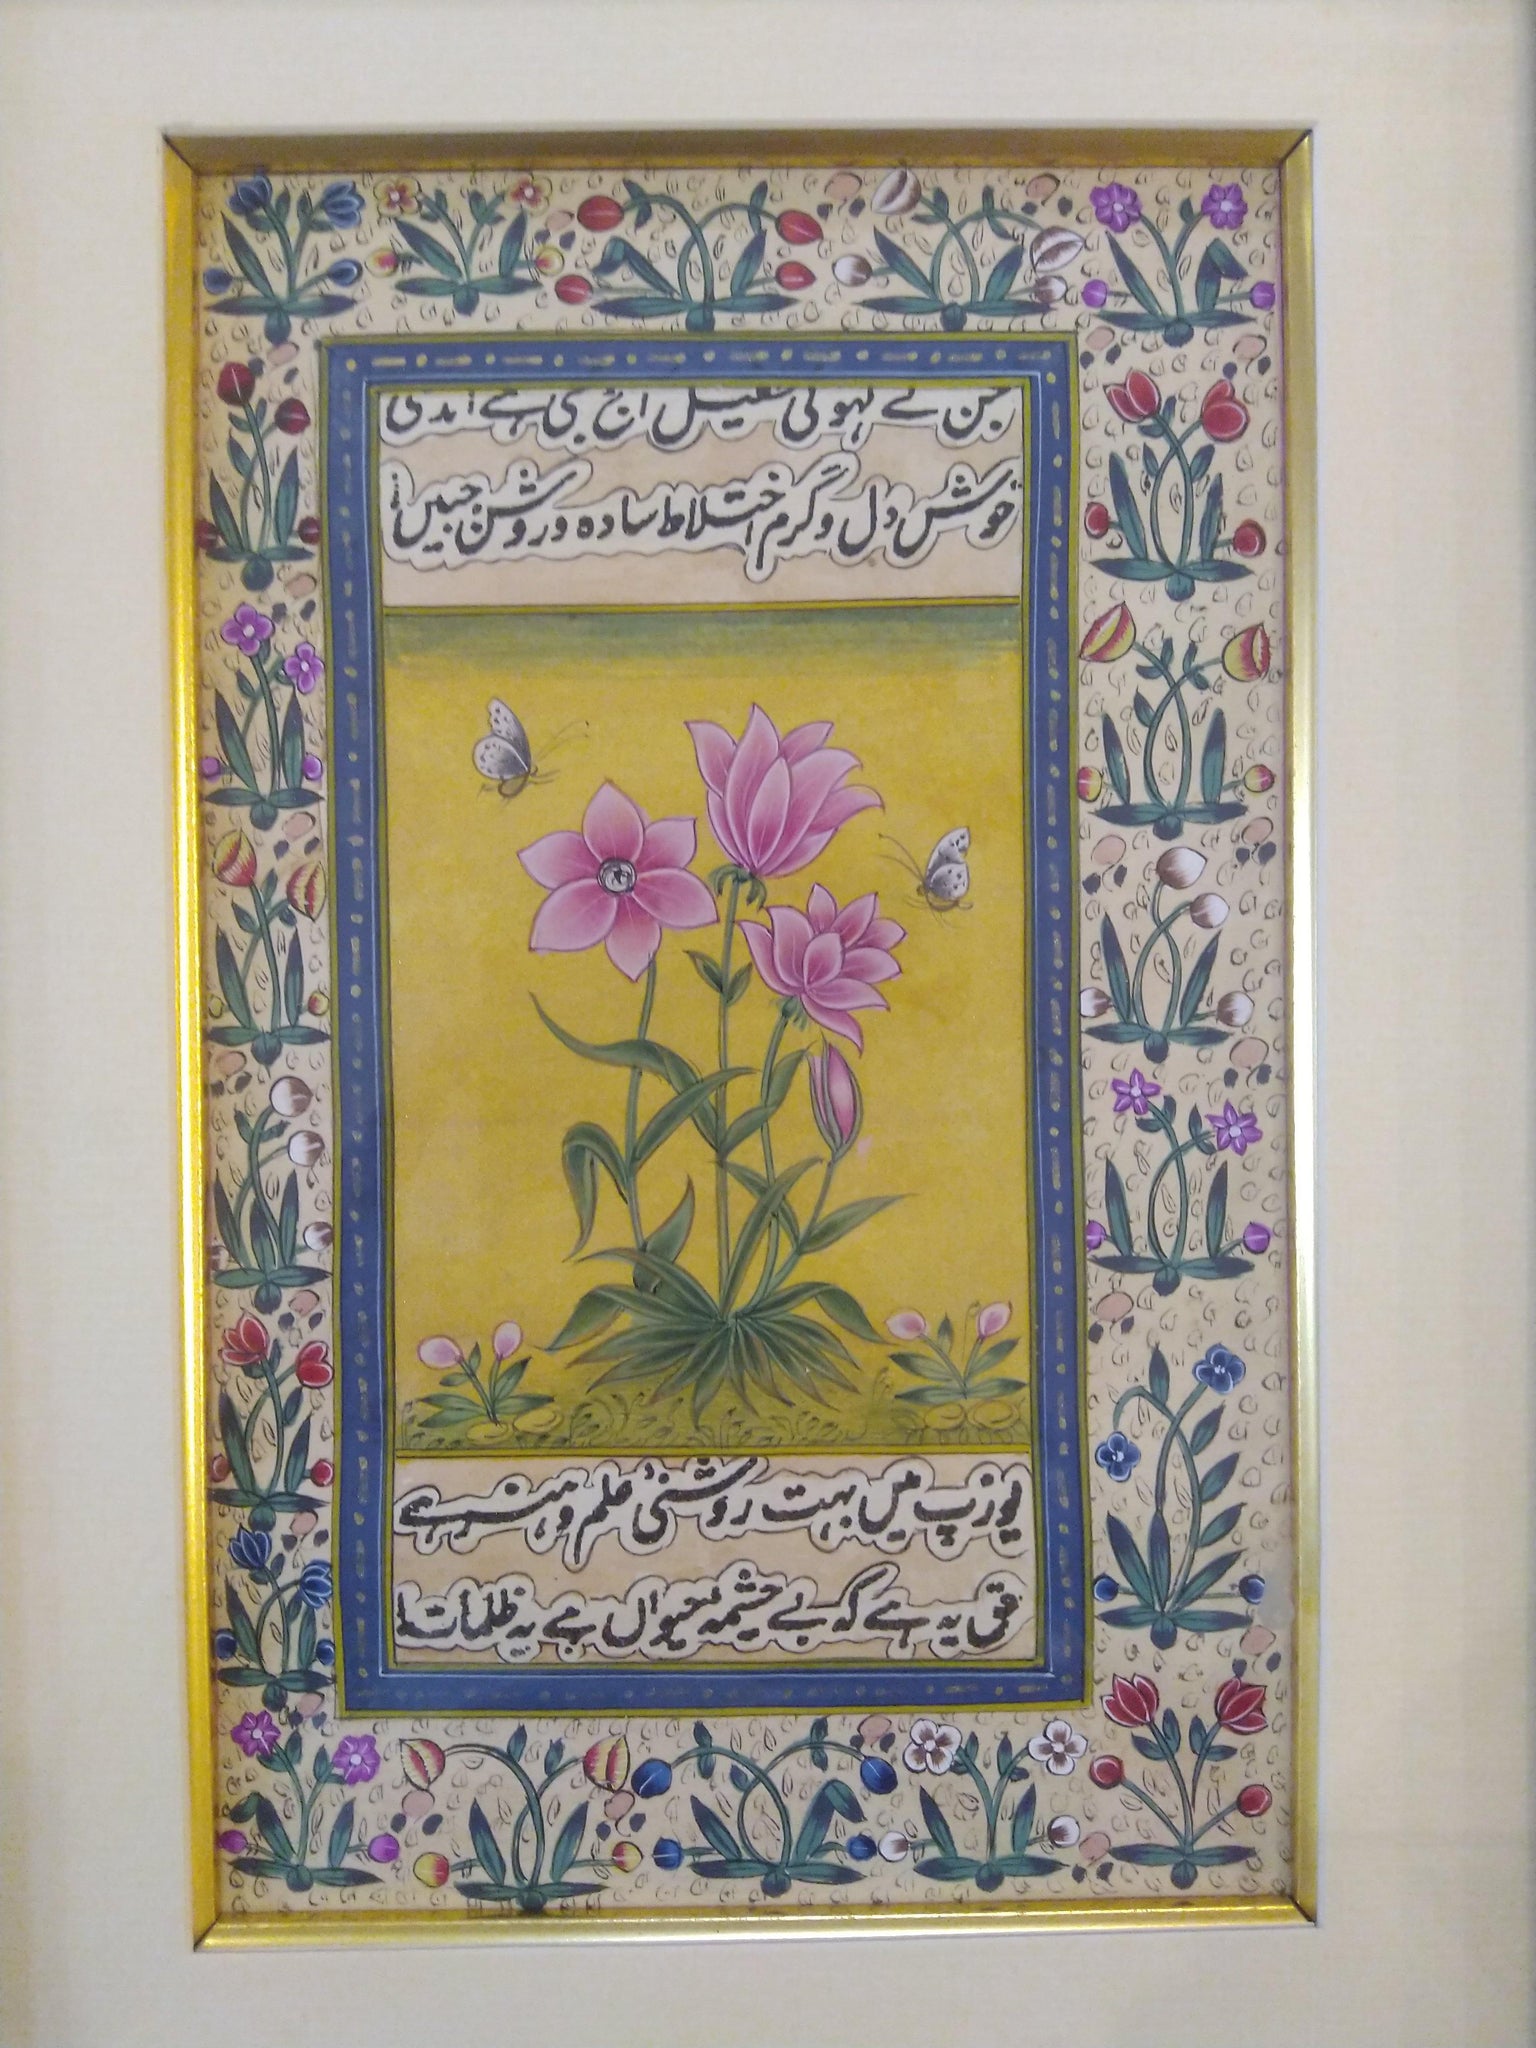 جن کے لہو کی طفیل آج بھی ہے اندلسی
خوش دل و گرم اختلاط سادہ و روشن جبیں
یورپ میں بہت روشنیٔ علم و ہنر ہے
حق یہ ہے کہ بے چشمۂ حیواں ہے یہ ظلمات